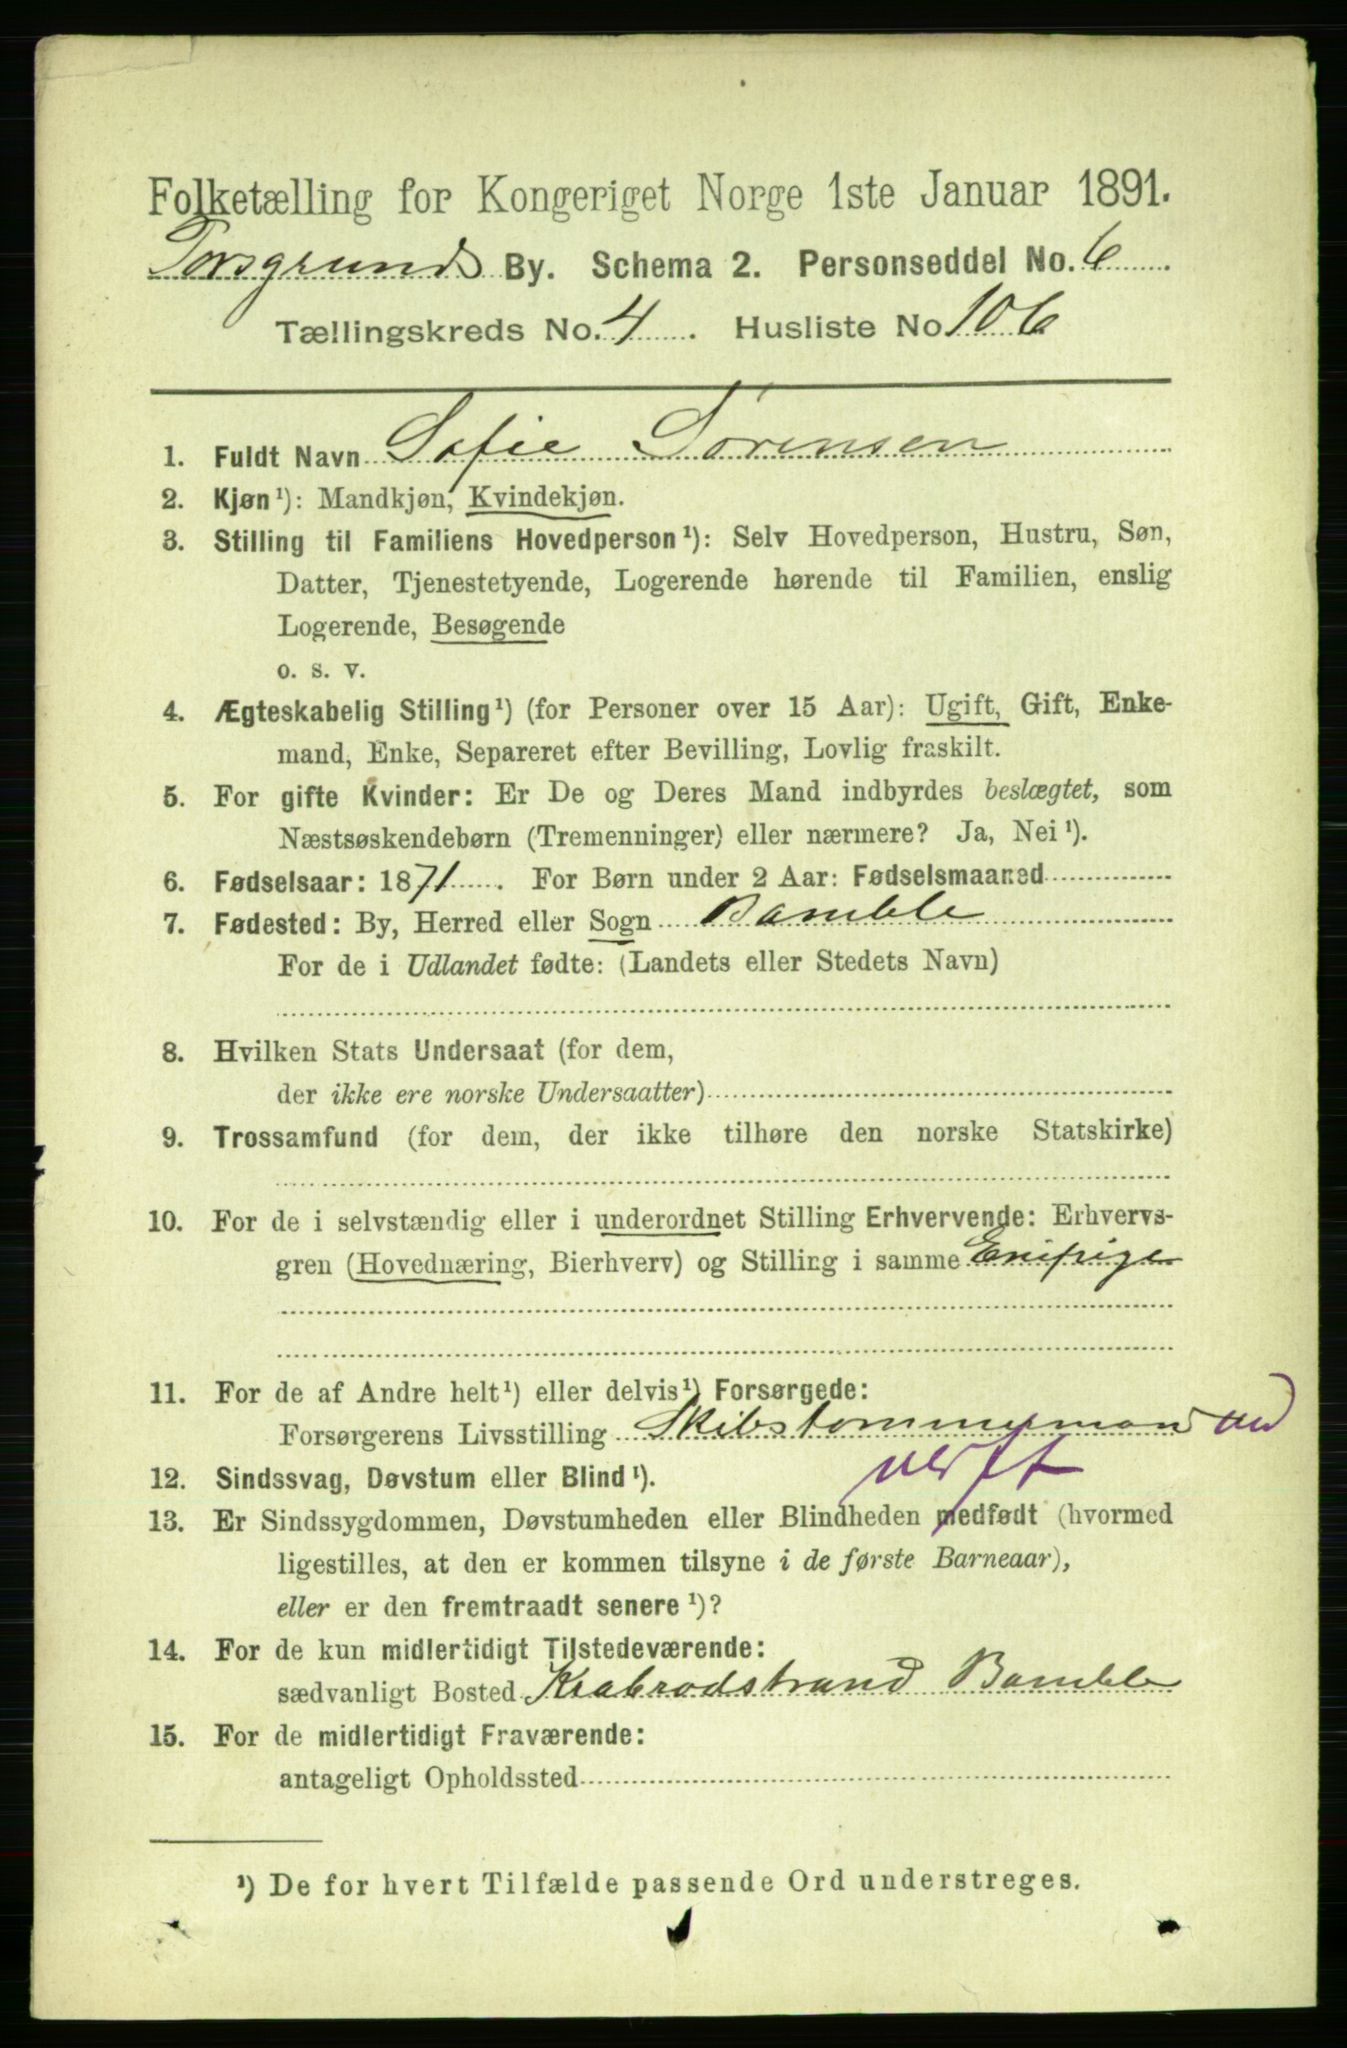 Folketælling for Kongeriget Norge 1ste Januar 1891.
Porsgrunds By. Schema 2. Personseddel No. 6
Tællingskreds No. 4. Husliste No 106
1. Fuldt Navn Sofie Sørensen
2. Kjøn¹): Mandkjøn, Kvindekjøn.
3. Stilling til Familiens Hovedperson¹): Selv Hovedperson, Hustru, Søn,
Datter, Tjenestetyende, Logerende hørende til Familien, enslig
Logerende, Besøgende
o. s. v.
4. Ægteskabelig Stilling¹) (for Personer over 15 Aar): Ugift, Gift, Enke-
mand, Enke, Separeret efter Bevilling, Lovlig fraskilt.
5. For gifte Kvinder: Er De og Deres Mand indbyrdes beslægtet, som
Næstsøskendebørn (Tremenninger) eller nærmere? Ja, Nei¹).
6. Fødselsaar: 1871. For Børn under 2 Aar: Fødselsmaaned
7. Fødested: By, Herred eller Sogn Bamble
For de i Udlandet fødte: (Landets eller Stedets Navn)
8. Hvilken Stats Undersaat (for dem,
der ikke ere norske Undersaatter)
9. Trossamfund (for dem, der ikke tilhøre den norske Statskirke)
10. For de i selvstændig eller i underordnet Stilling Erhvervende: Erhvervs-
gren (Hovednæring, Bierhverv) og Stilling i samme
11. For de af Andre helt¹) eller delvis¹) Forsørgede:
Forsørgerens Livsstilling Skibstømmermand ved
verft
12. Sindssvag, Døvstum eller Blind¹).
13. Er Sindssygdommen, Døvstumheden eller Blindheden medfødt (hvormed
ligestilles, at den er kommen tilsyne i de første Barneaar),
eller er den fremtraadt senere¹)?
14. For de kun midlertidigt Tilstedeværende:
sædvanligt Bosted Krabrodstrand Bamble
15. For de midlertidigt Fraværende:
antageligt Opholdssted
¹) De for hvert Tilfælde passende Ord understreges.